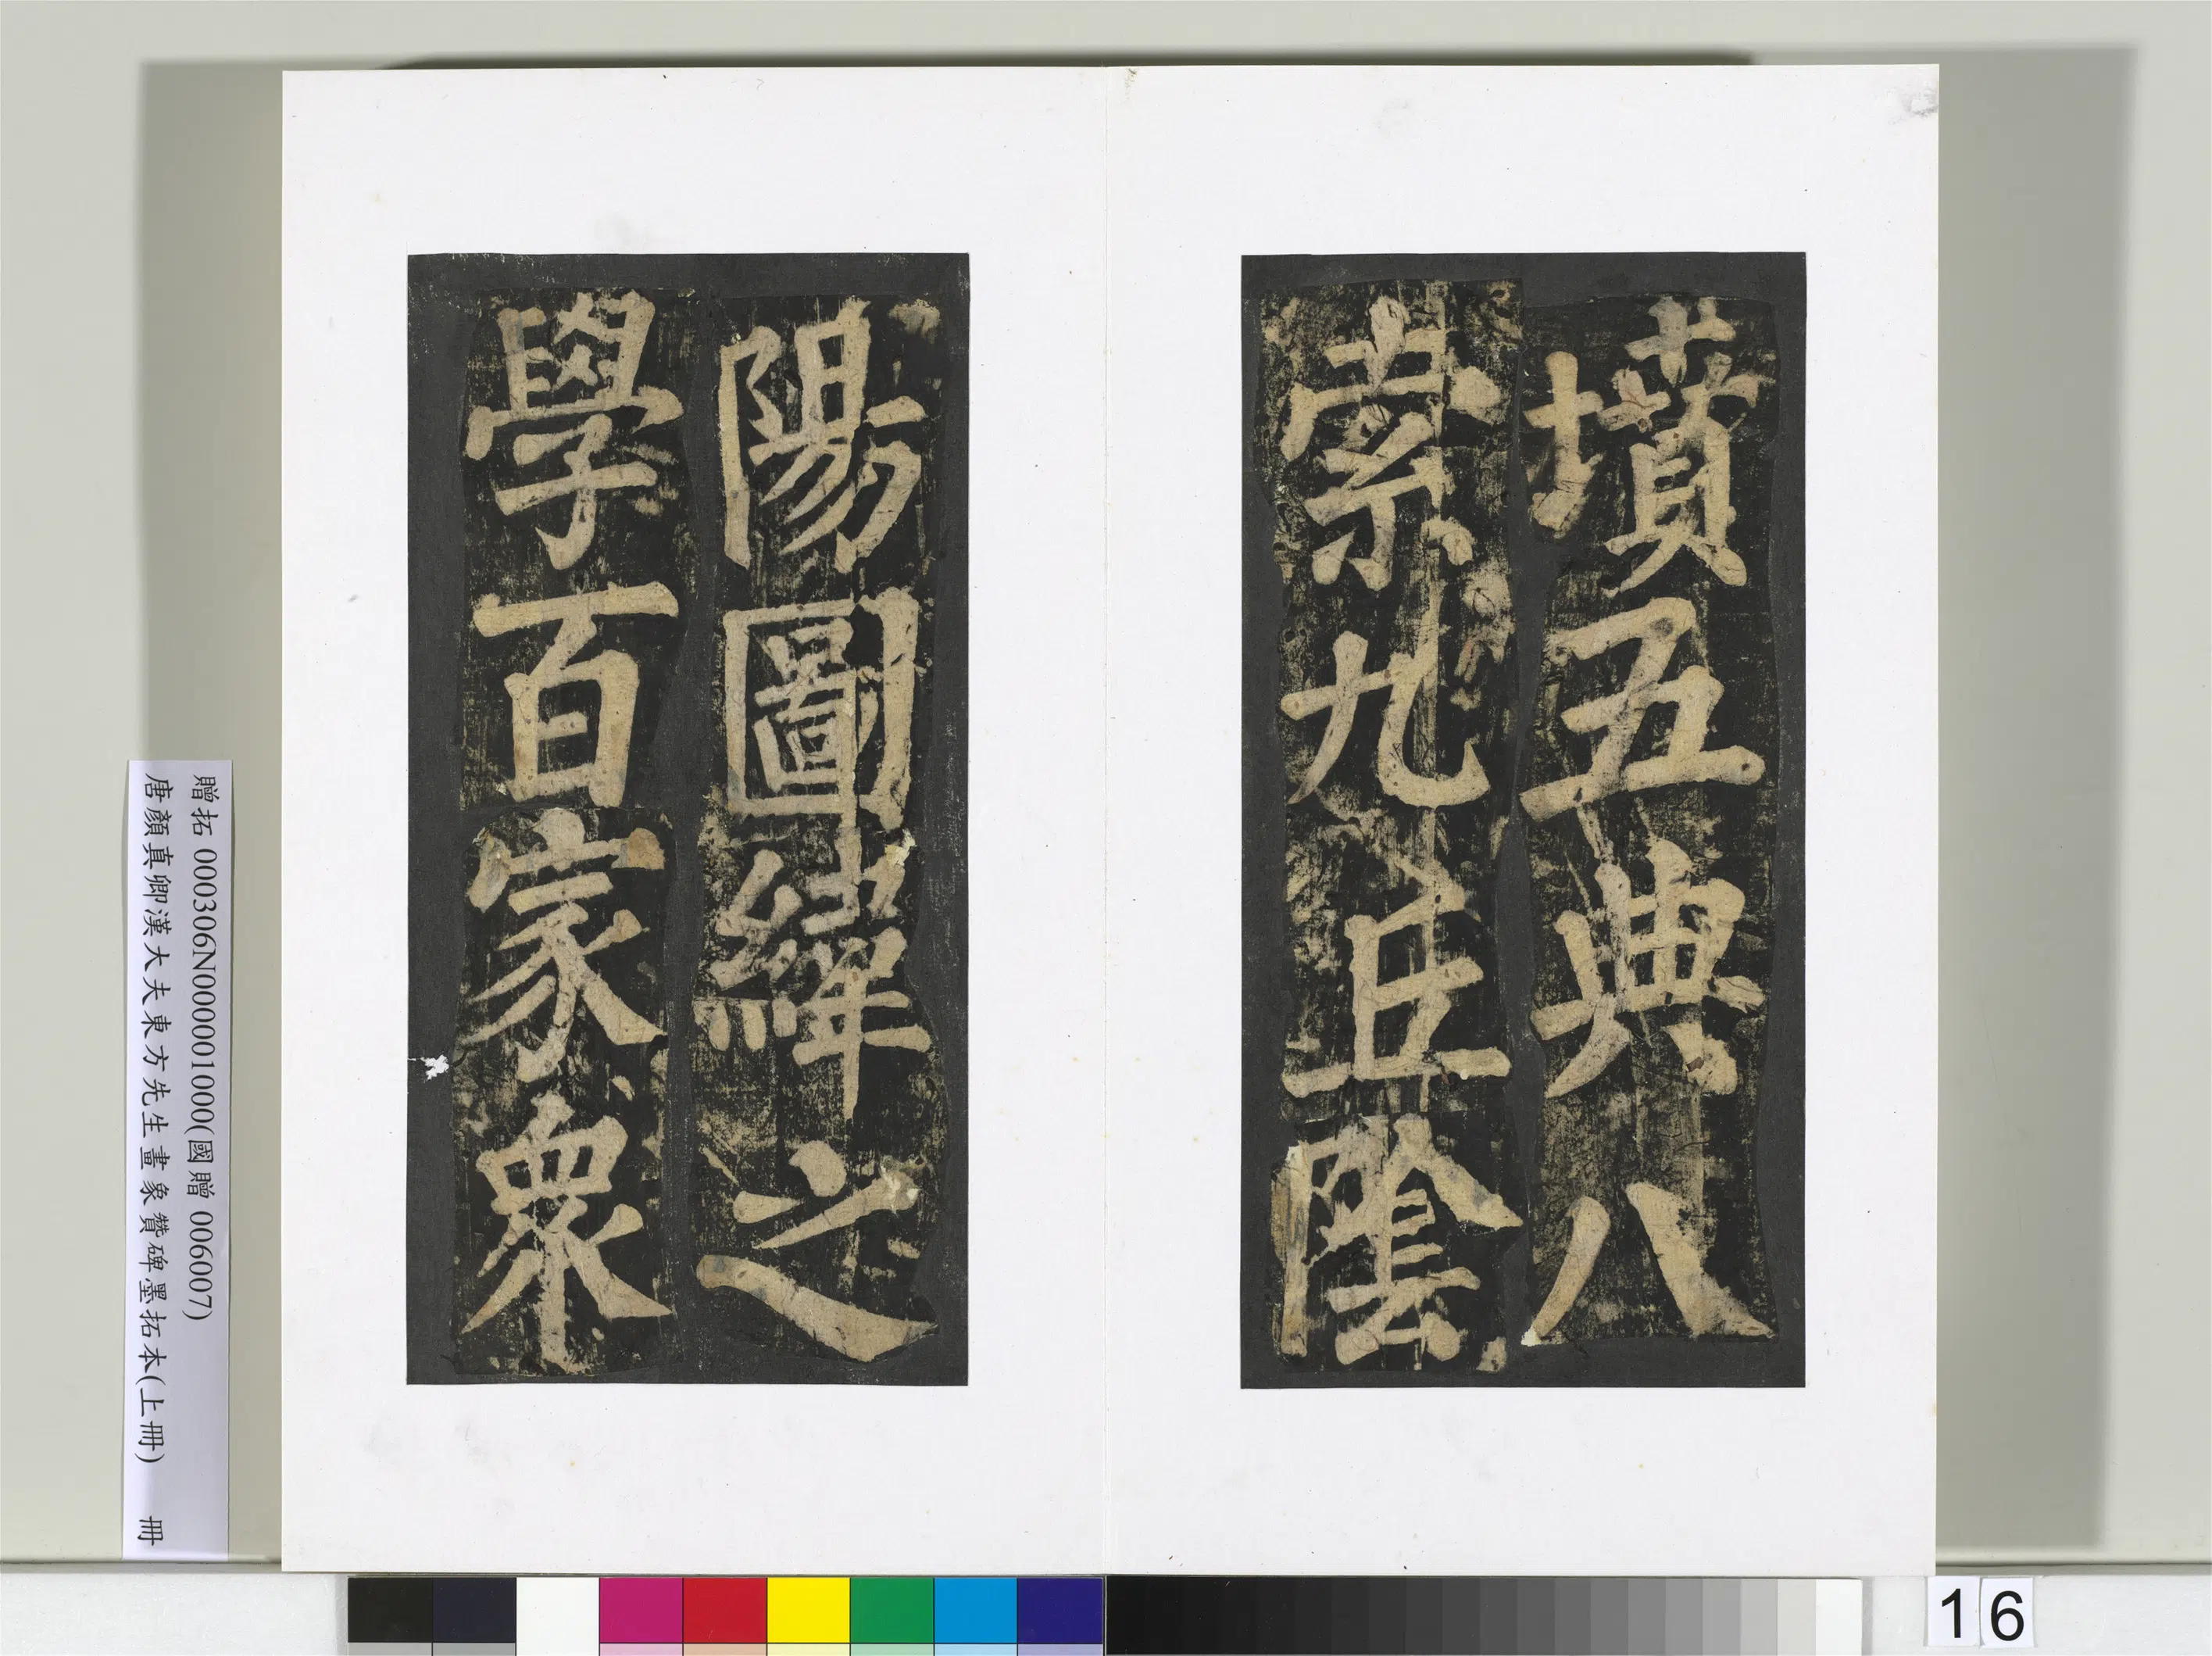 墳五典八
索九丘陰
陽圖緯之
學百家衆
贈拓 000306N000001000(國贈 006007)
唐顏真卿漢大夫東方先生畫象贊碑墨拓本(上冊) 冊
16